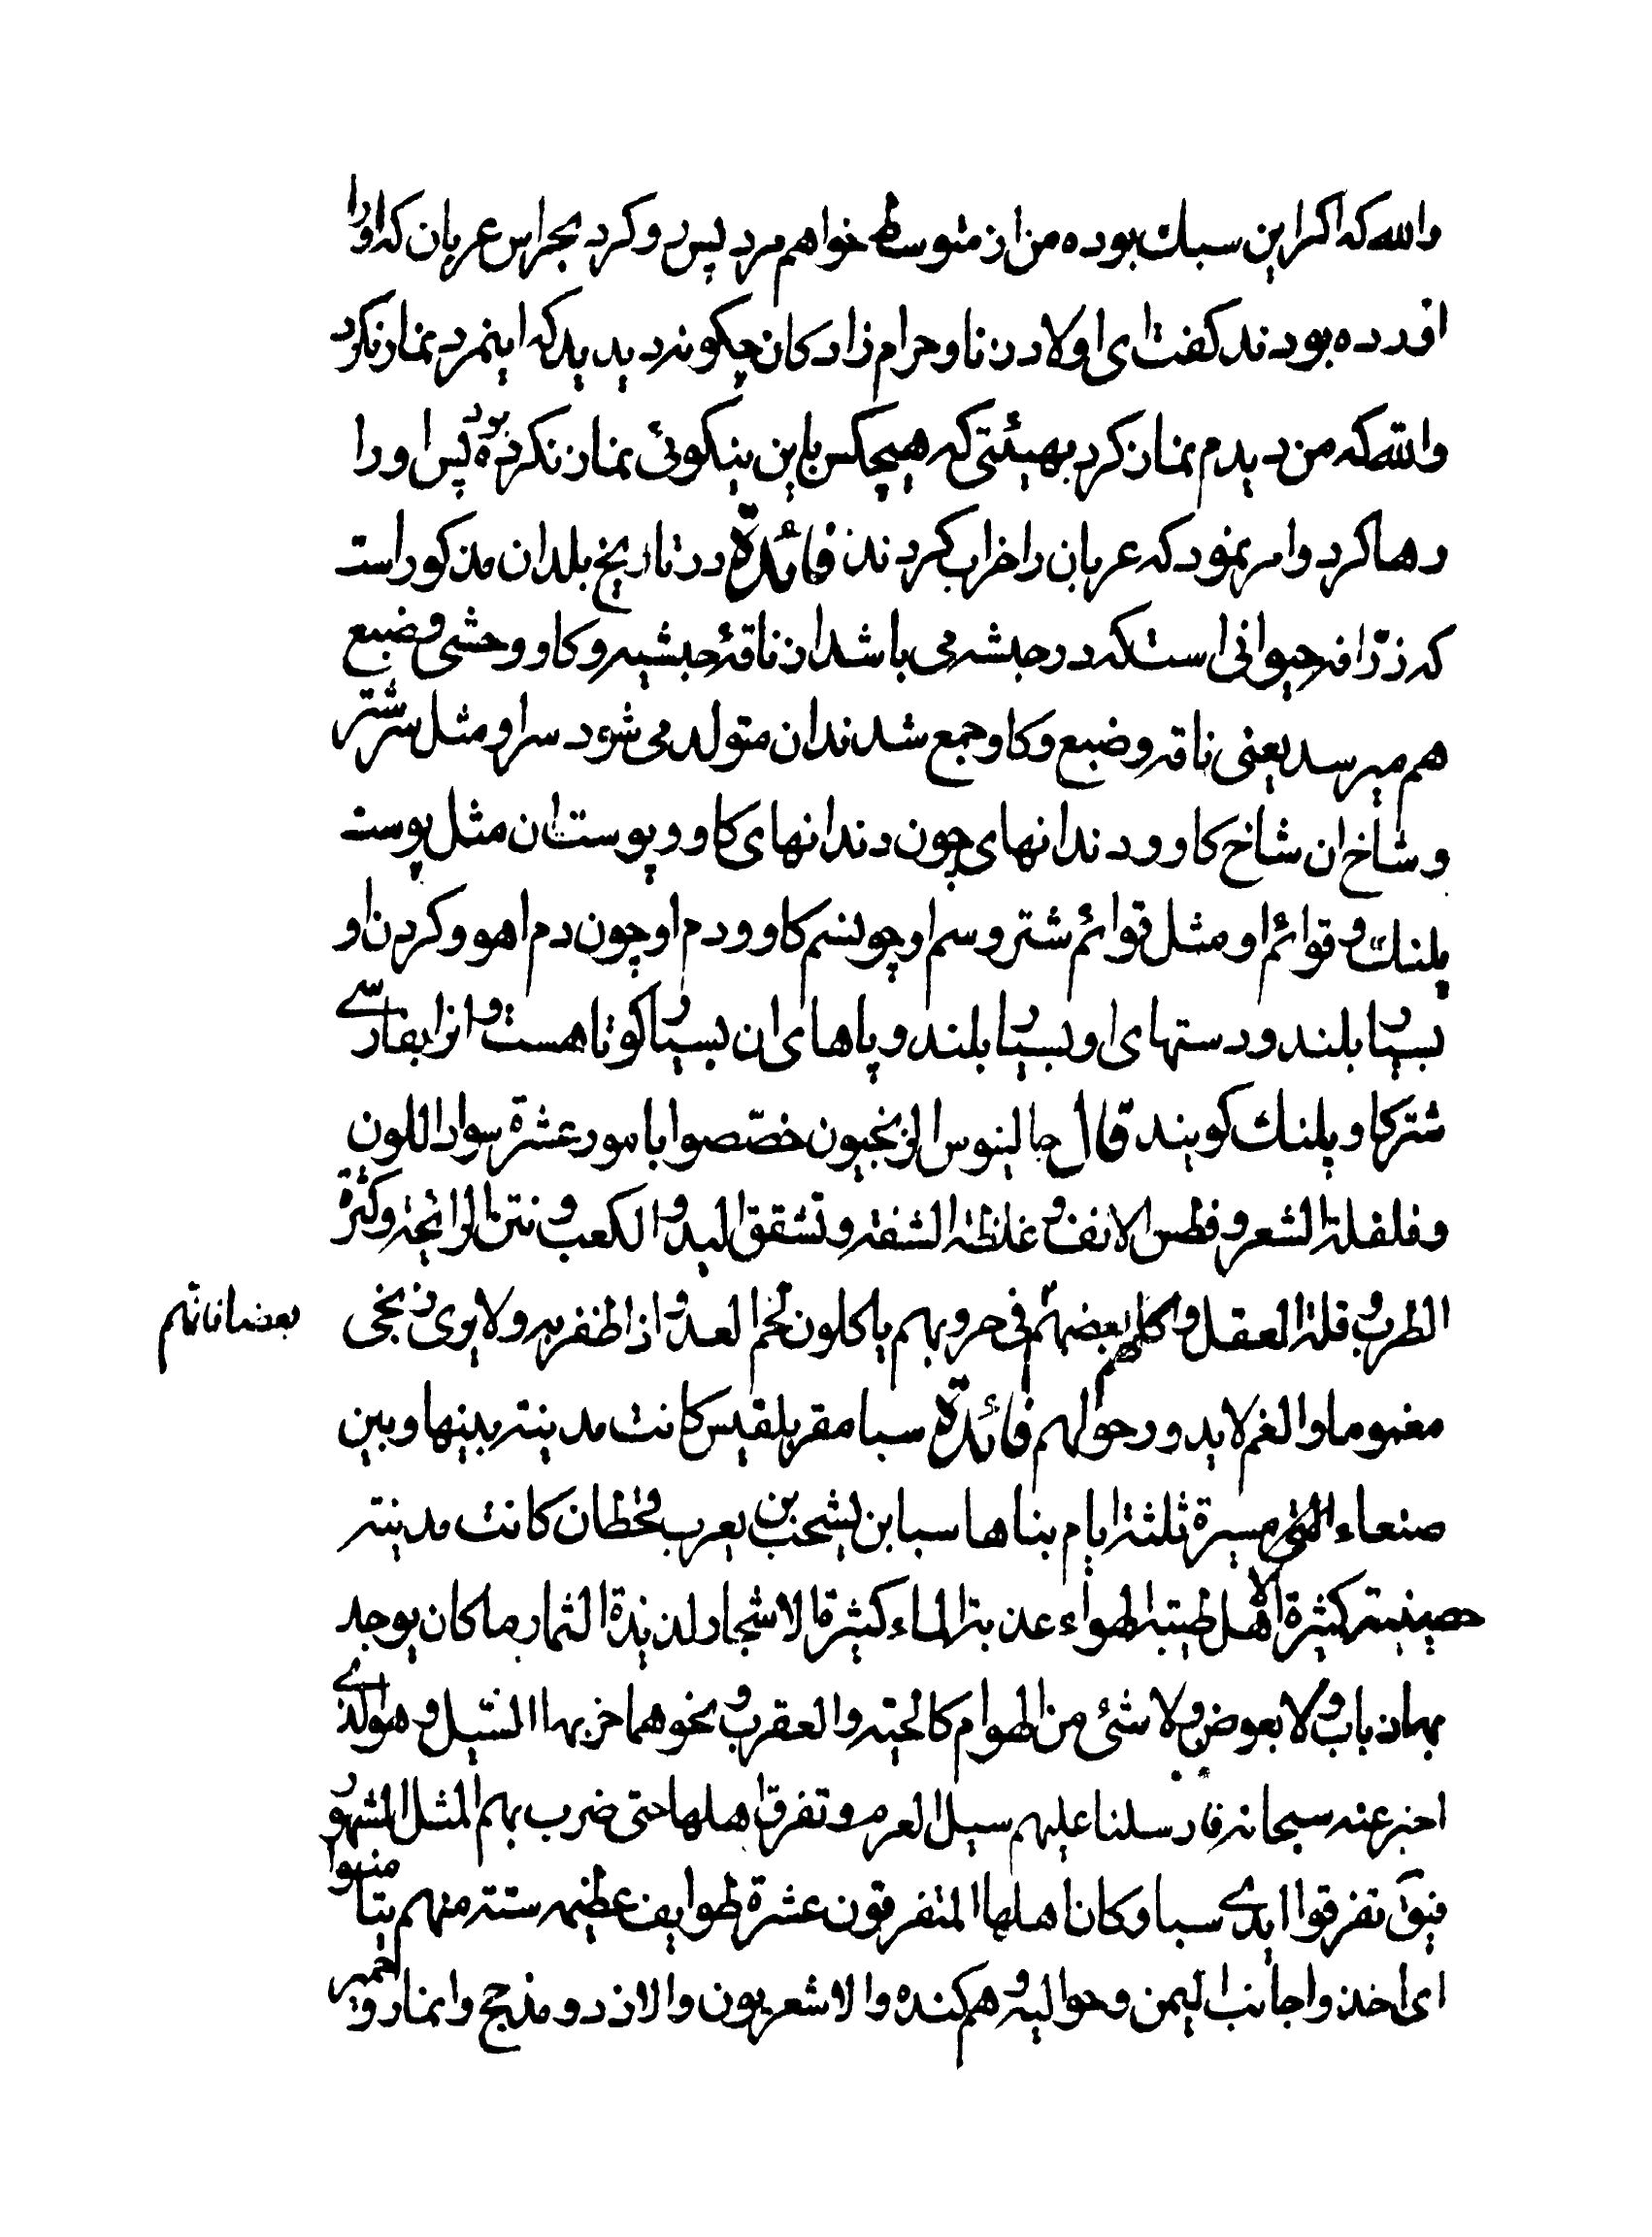 والله که اکر این سبك بوده من از متوسط خواهم مرد پس رو کرد بجراس عربان که او را
اورده بودند کفت ای اولاد زنا و حرام زادکان چکونه دیدید که اینمرد نماز نکرد
والله که من دیدم نماز کرد بهیئتی که هیچکس باین نیکوئی نماز نکرده بود پس او را
رها کرد و امر نمود که عربان را خراب کردند فائدة در تاریخ بلدان مذکور است
که زرّافه حیوانی است که در حبشه می باشد از ناقهٔ حبشیه و کاو وحشی و ضبع
هم میرسد یعنی ناقه و ضبع و کاو جمع شدند از ان متولد می شود سر او مثل سر شتر
و شاخ ان شاخ کاو و دندانهای چون دندانهای کاو و پوست ان مثل پوست
پلنك و قوائم او مثل قوائم شتر و سم او چون سم کاو و دم او چون دم اهو و کردن او
بسیار بلند و دستهای او بسیار بلند و پاهای ان بسیار کوتاهست و انرا بفارسی
شتر کاو پلنك کویند قال جالینوس الزنجیون خصّصوا بامور عشرة سواد اللون
و فلفلة الشعر و فطس الانف و غلظة الشفة و تشقق الید و الکعب و نتن الرائحة و کثرة
الطرب و قلة العقل و اکل بعضهم فی حروبهم یاکلون لحم العدو اذا ظفر به و لا یری زنجی
بعضا فانهم
مغموما و الغم لا یدور حولهم فائدة سبا مقر بلقیس کانت مدینة بینها و بین
صنعاء مسیرة ثلثة ایام بناها سبا بن یشحب بن یعرب قحطان کانت مدینة
حصینة کثیرة الاهل طیبة الهواء عذبة الماء کثیرة الاشجار لذیذة الثمار ما کان یوجد
بها ذباب و لا بعوض و لا شئ من الهوام کالحیة و العقرب و نحوهما خربها السّیل و هو الذی
اخبر عنه سبحانه فارسلنا علیهم سیل العرم و تفرق اهلها حتی ضرب بهم المثل المشهور
فیق تفرقوا ایدی سبا و کان اهلها المتفرقون عشرة طوایف عظیمة ستة منهم تیامنوا
ای اخذوا جانب الیمن و حوالیه و هم کنده و الاشعریون و الازد و مذحج و انمار و حمیر